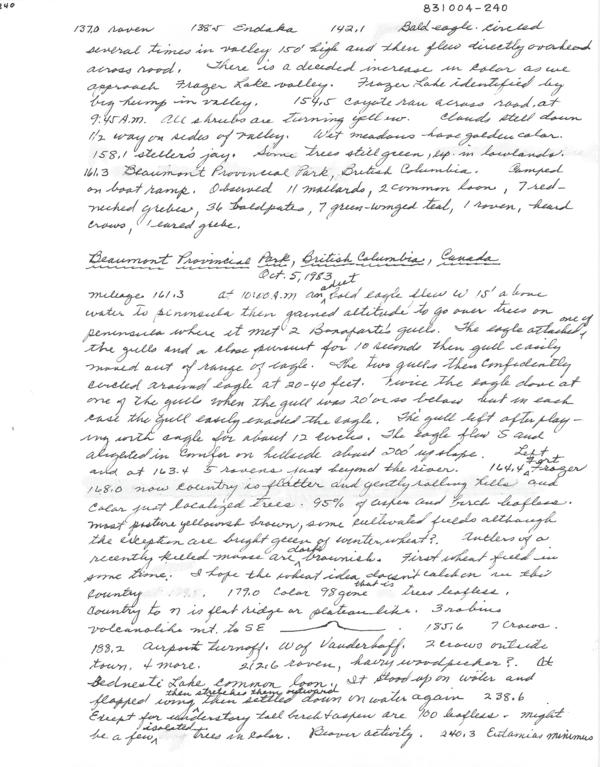 240
831004-240
137.0 raven 138.5 Endaka 142.1 Bald eagle circled
several times in valley 150' high and then flew directly overhead
across road. There is a decided increase in color as we
approach Frazer Lake valley. Frazer Lake identified by
big hump in valley. 154.5 coyote ran across road, at
9:45 A.M. All shrubs are turning yellow. Clouds still down
1/2 way on sides of valley. Wet meadows have golden color.
158.1 steller's jay. Some trees still green, esp. in lowlands.
161.3 Beaumont Provincial Park, British Columbia. Camped
on boat ramp. Observed 11 mallards, 2 common loon, 7 red-
necked grebes, 36 baldpates, 7 green-winged teal, 1 raven, heard
crows, 1 eared grebe.
Beaumont Provincial Park, British Columbia, Canada
Oct. 5, 1983
mileage 161.3 at 10:00 A.M an adult bald eagle flew W 15' above
water to peninsula then gained altitude to go over trees on
peninsula where it met 2 Bonaparte's gulls. The eagle attacked one of
the gulls and a close pursuit for 10 seconds then gull easily
moved out of range of eagle. The two gulls then confidently
circled around eagle at 20-40 feet. Twice the eagle dove at
one of the gulls when the gull was 20' or so below but in each
case the gull easily evaded the eagle. The gull left after play-
ing with eagle for about 12 circles. The eagle flew S and
alighted in conifer on hillside about 200' up slope. Left
and at 163.4 5 ravens just beyond the river. 164.4 Fort Frazer
168.0 now country is flatter and gently rolling hills and
color just localized trees. 95% of aspen and birch leafless.
Most pasture yellowish brown, some cultivated fields although
the exception are bright green of winter wheat?. Antlers of a
recently killed moose are dark brownish. First wheat field in
some time. I hope the wheat idea doesn't catch on in this
country 179.0 Color 98 gone that is trees leafless.
Country to N is flat ridge or plateau like. 3 robins
volcanolike mt. to SE 185.6 7 crows.
188.2 Airport turnoff. W of Vanderhoff. 2 crows outside
town. 4 more. 212.6 raven, hairy woodpecker?. At
Bednesti Lake common loon. It stood up on water and
flapped wing then stretches them outward then settled down on water again 238.6
Except for understory tall birch & aspen are 100 leafless. Might
be a few isolated trees in color. Beaver activity. 240.3 Eutamias minimus